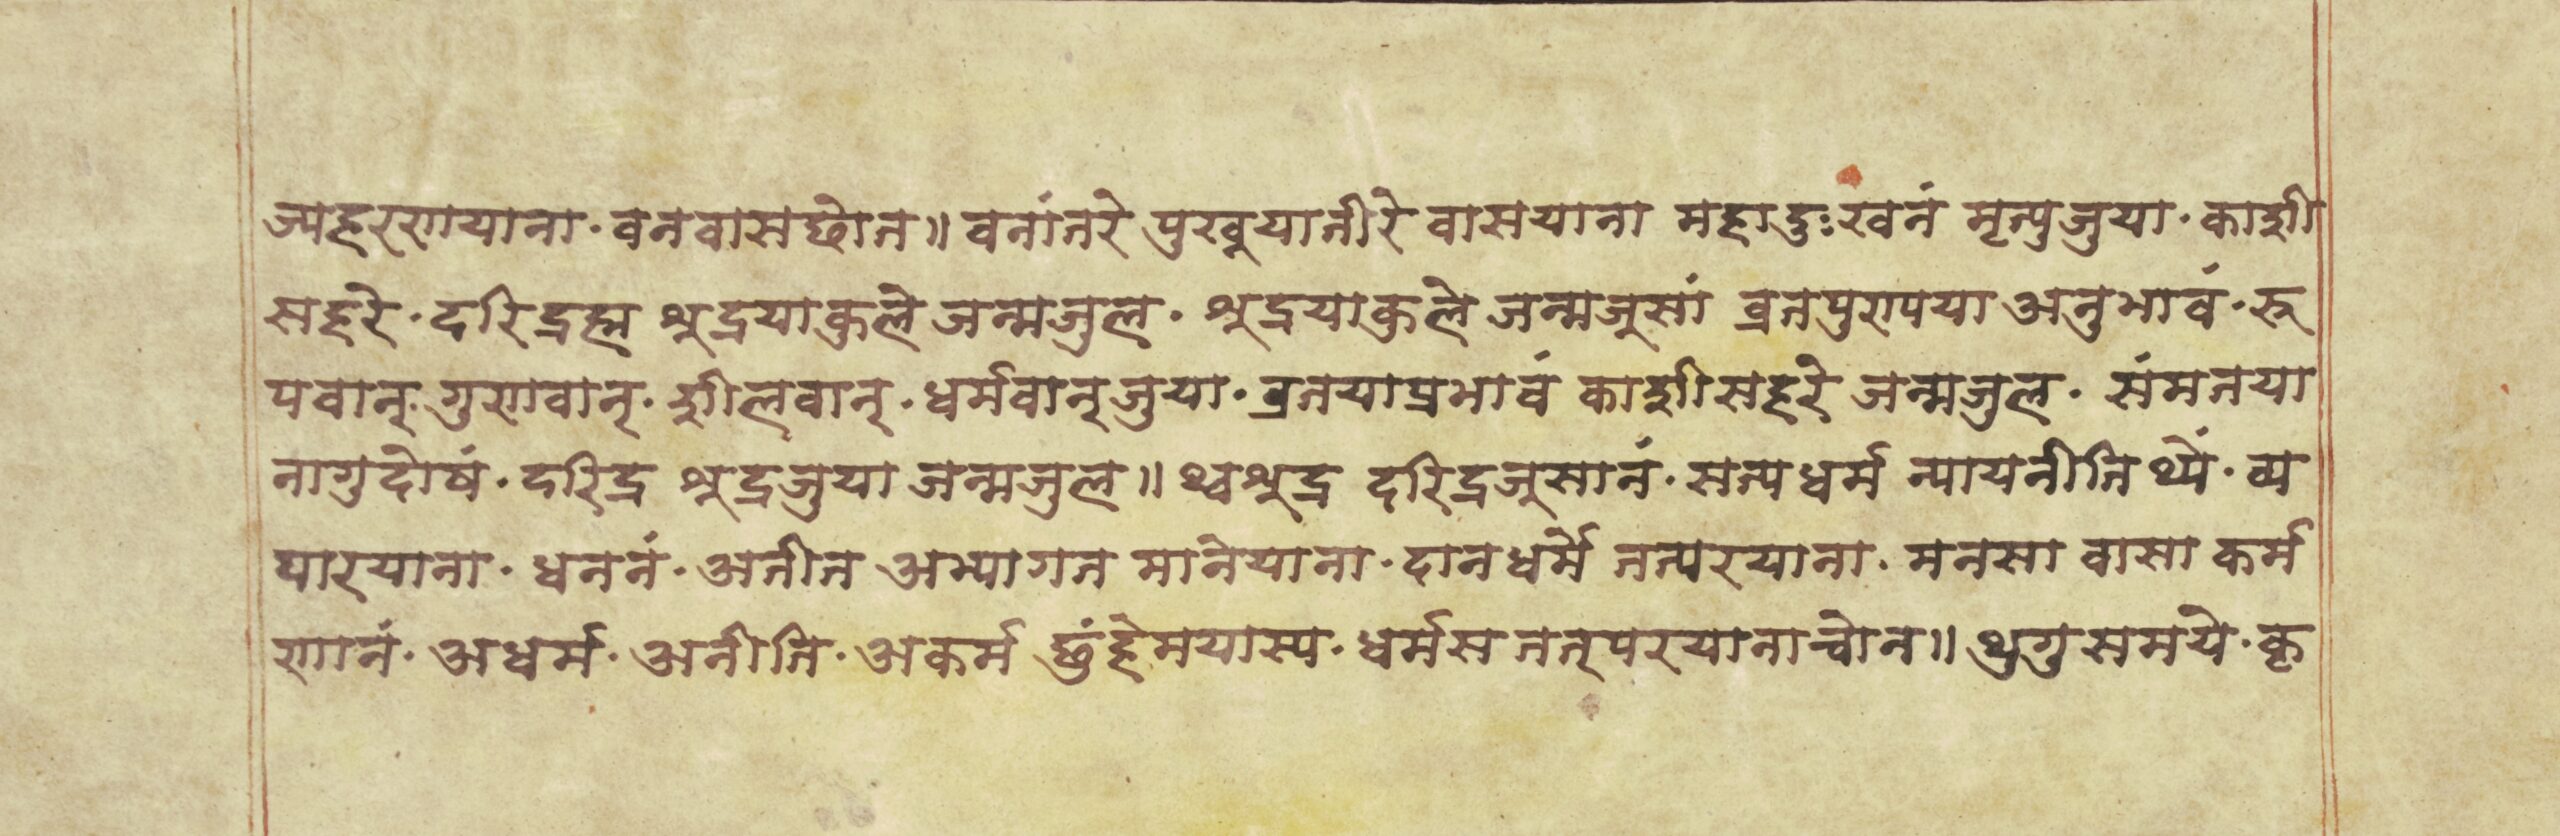 ज्यहरणयाना॰ वनवासछोन॥ वनांतरे पुखुयातीरे वासयाना महादुःखनं मृत्युजुया॰ काशी
सहरे॰ दरिद्रह्म शूद्रयाकुले जन्मजुल॰ शूद्रयाकुले जन्मजूसां व्रतपुण्यया अनुभावं॰ रू
पवान्॰ गुणवान्॰ शीलवान्॰ धर्मवान्जुया॰ व्रतयाप्रभावं काशीसहरे जन्मजुल॰ संमतया
नागुदोषं॰ दरिद्र शूद्रजुया जन्मजुल॥ थ्वशूद्र दरिद्रजूसानं॰ सत्यधर्म न्यायनीति थ्यें॰ व्य
पारयाना॰ धननं॰ अतीत अभ्यागत मानेयाना॰ दानधर्मे तत्परयाना॰ मनसा वासा कर्म
णानं॰ अधर्म॰ अनीति॰ अकर्म छुंहेमयास्य॰ धर्मस तत्परयानाच्वोन॥ थुगुसमये॰ कृ